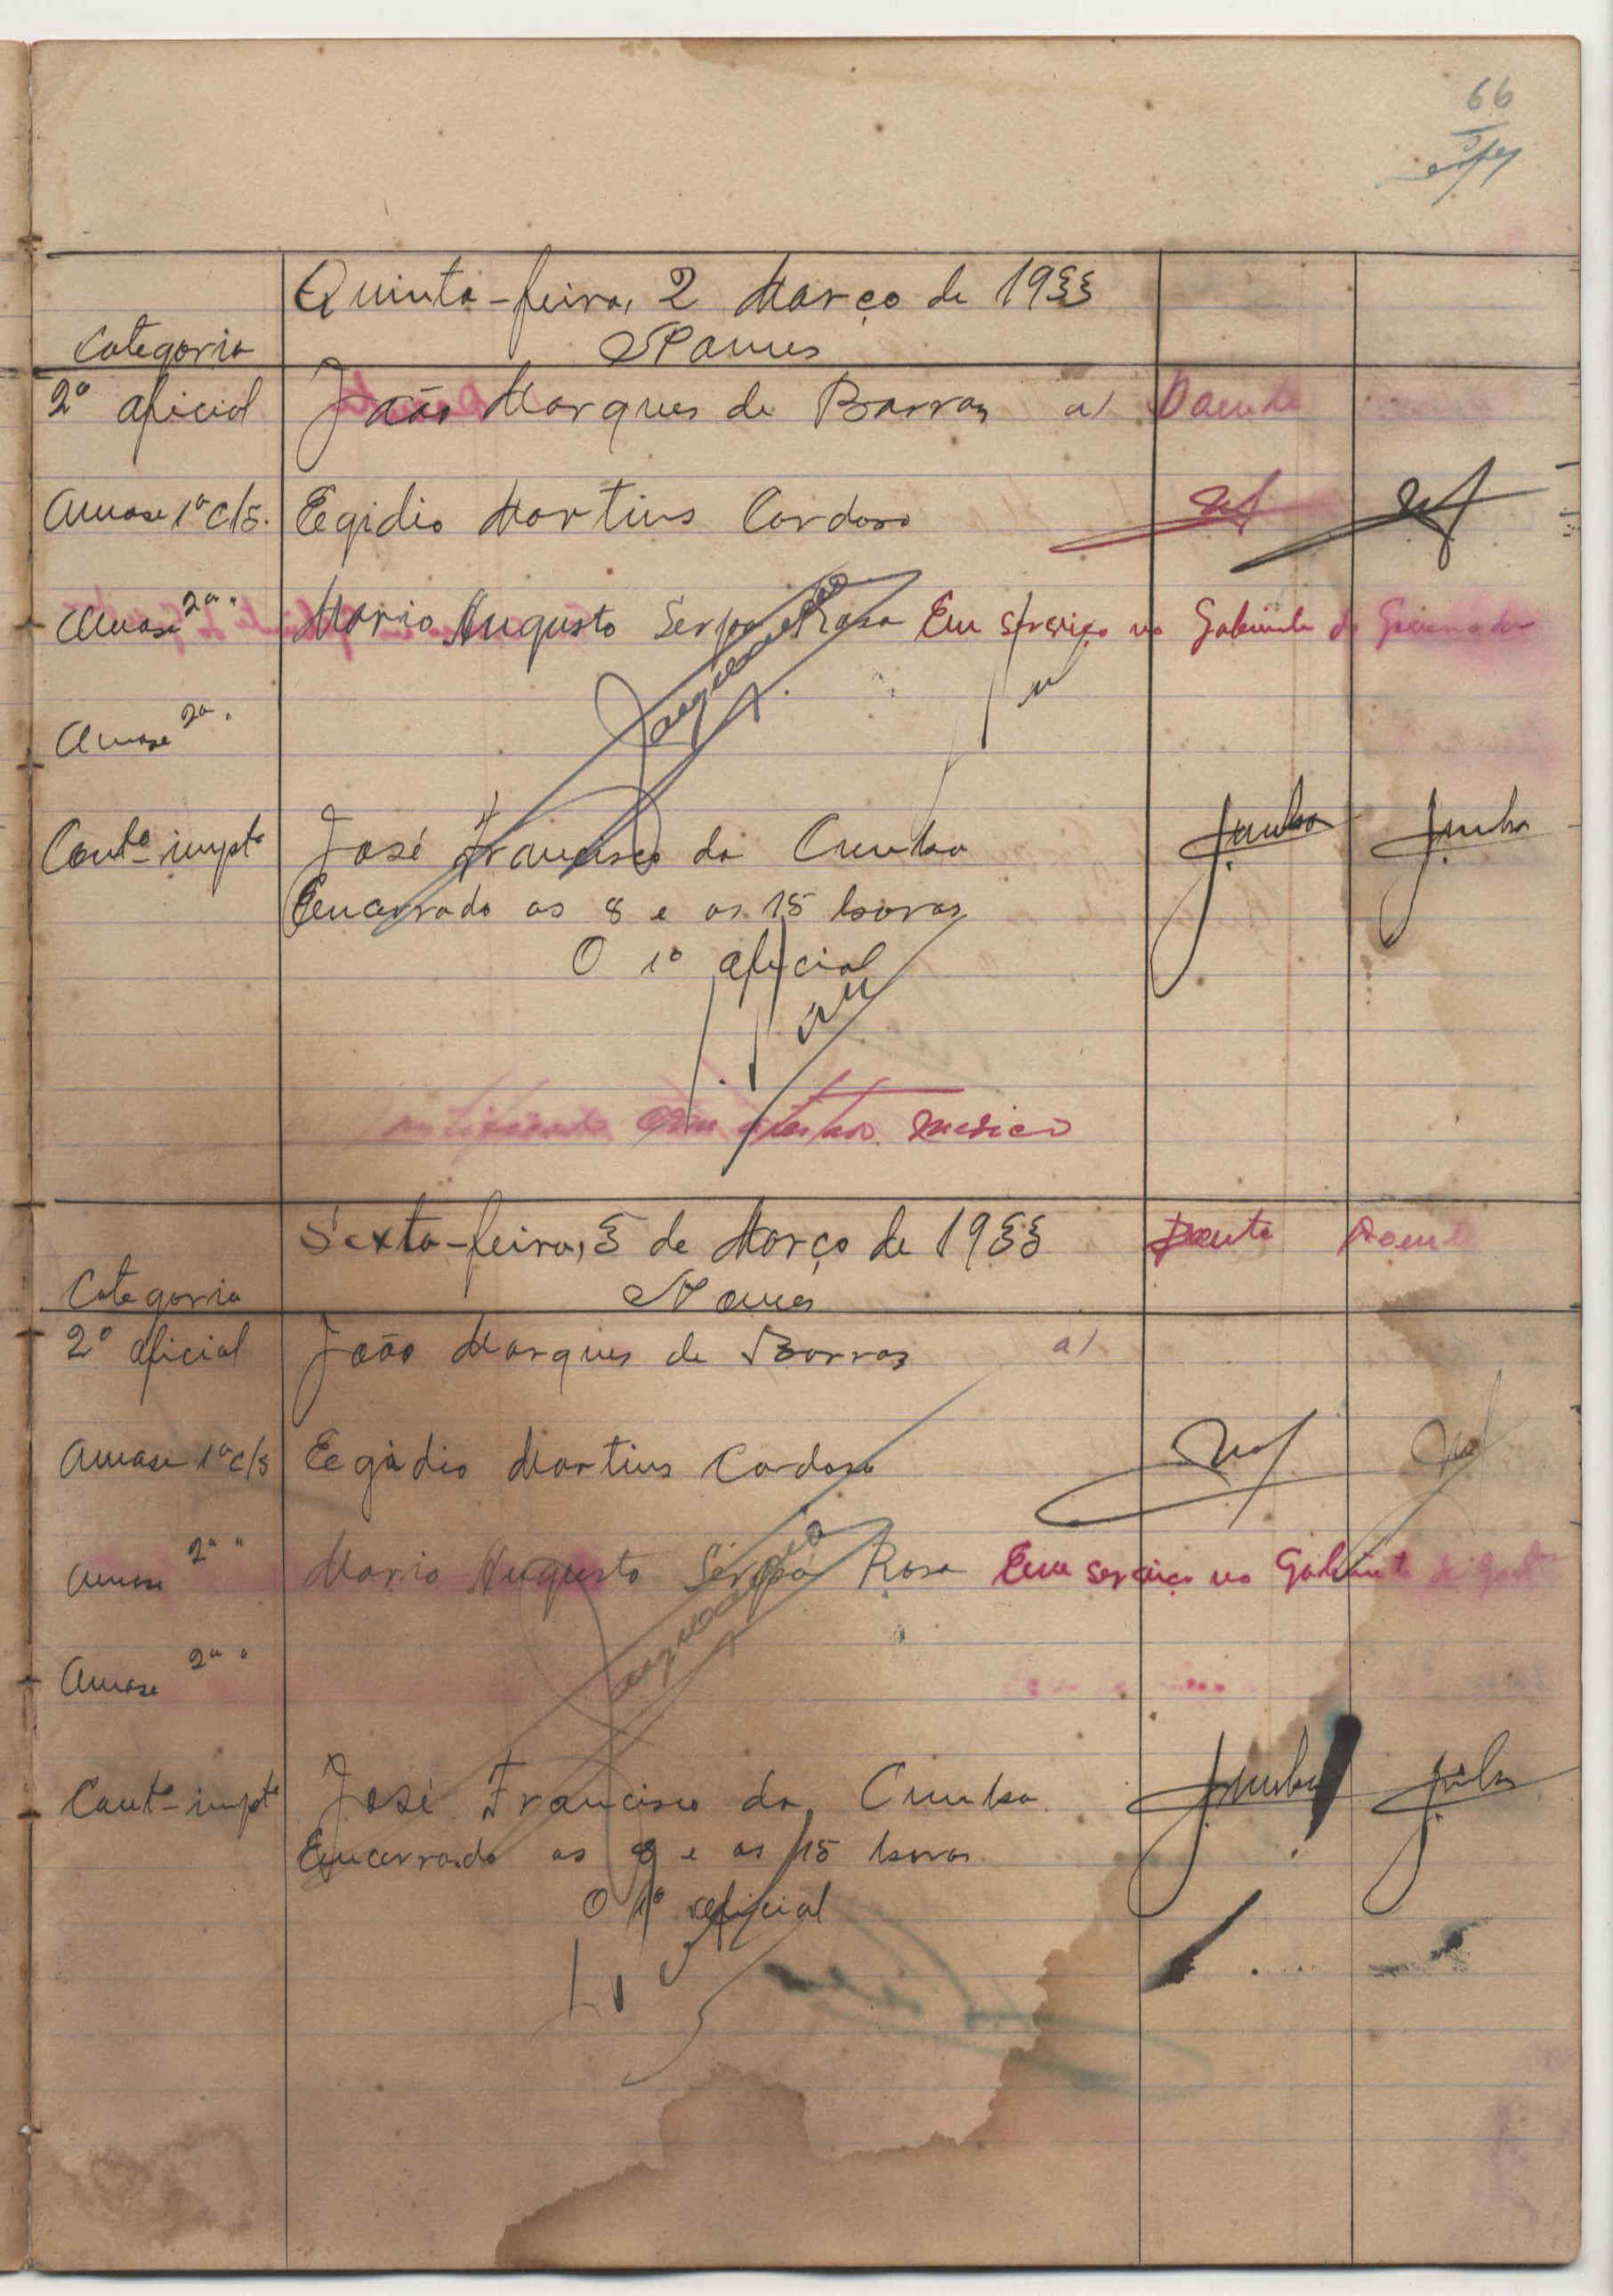 66
Quinta-feira, 2 Março de 1933
Categoria Nomes
2º oficial João Marques de Barros a) Doente
Amase 1ª c/s. Egidio Martins Cardoso
Amase 2ª " Mario Augusto Serpa Rosa Em serviço no Gabinete do Governador
Amase 2ª "
Contº imptº José Francisco da Cunha Jcunha Jcunha
Encerrado as 8 e as 15 horas
O 1º oficial
com medico
Sexta-feira, 3 de Março de 1933 Doente Doente
Categoria Nomes
2º oficial João Marques de Barros a)
Amase 1ª c/s Egidio Martins Cardoso
Amase 2ª " Mario Augusto Serpa Rosa Em serviço no Gabinete do
Amase 2ª "
Contº imptº José Francisco da Cunha Jcunha
Encerrado as 8 e as 15 horas
O 1º oficial